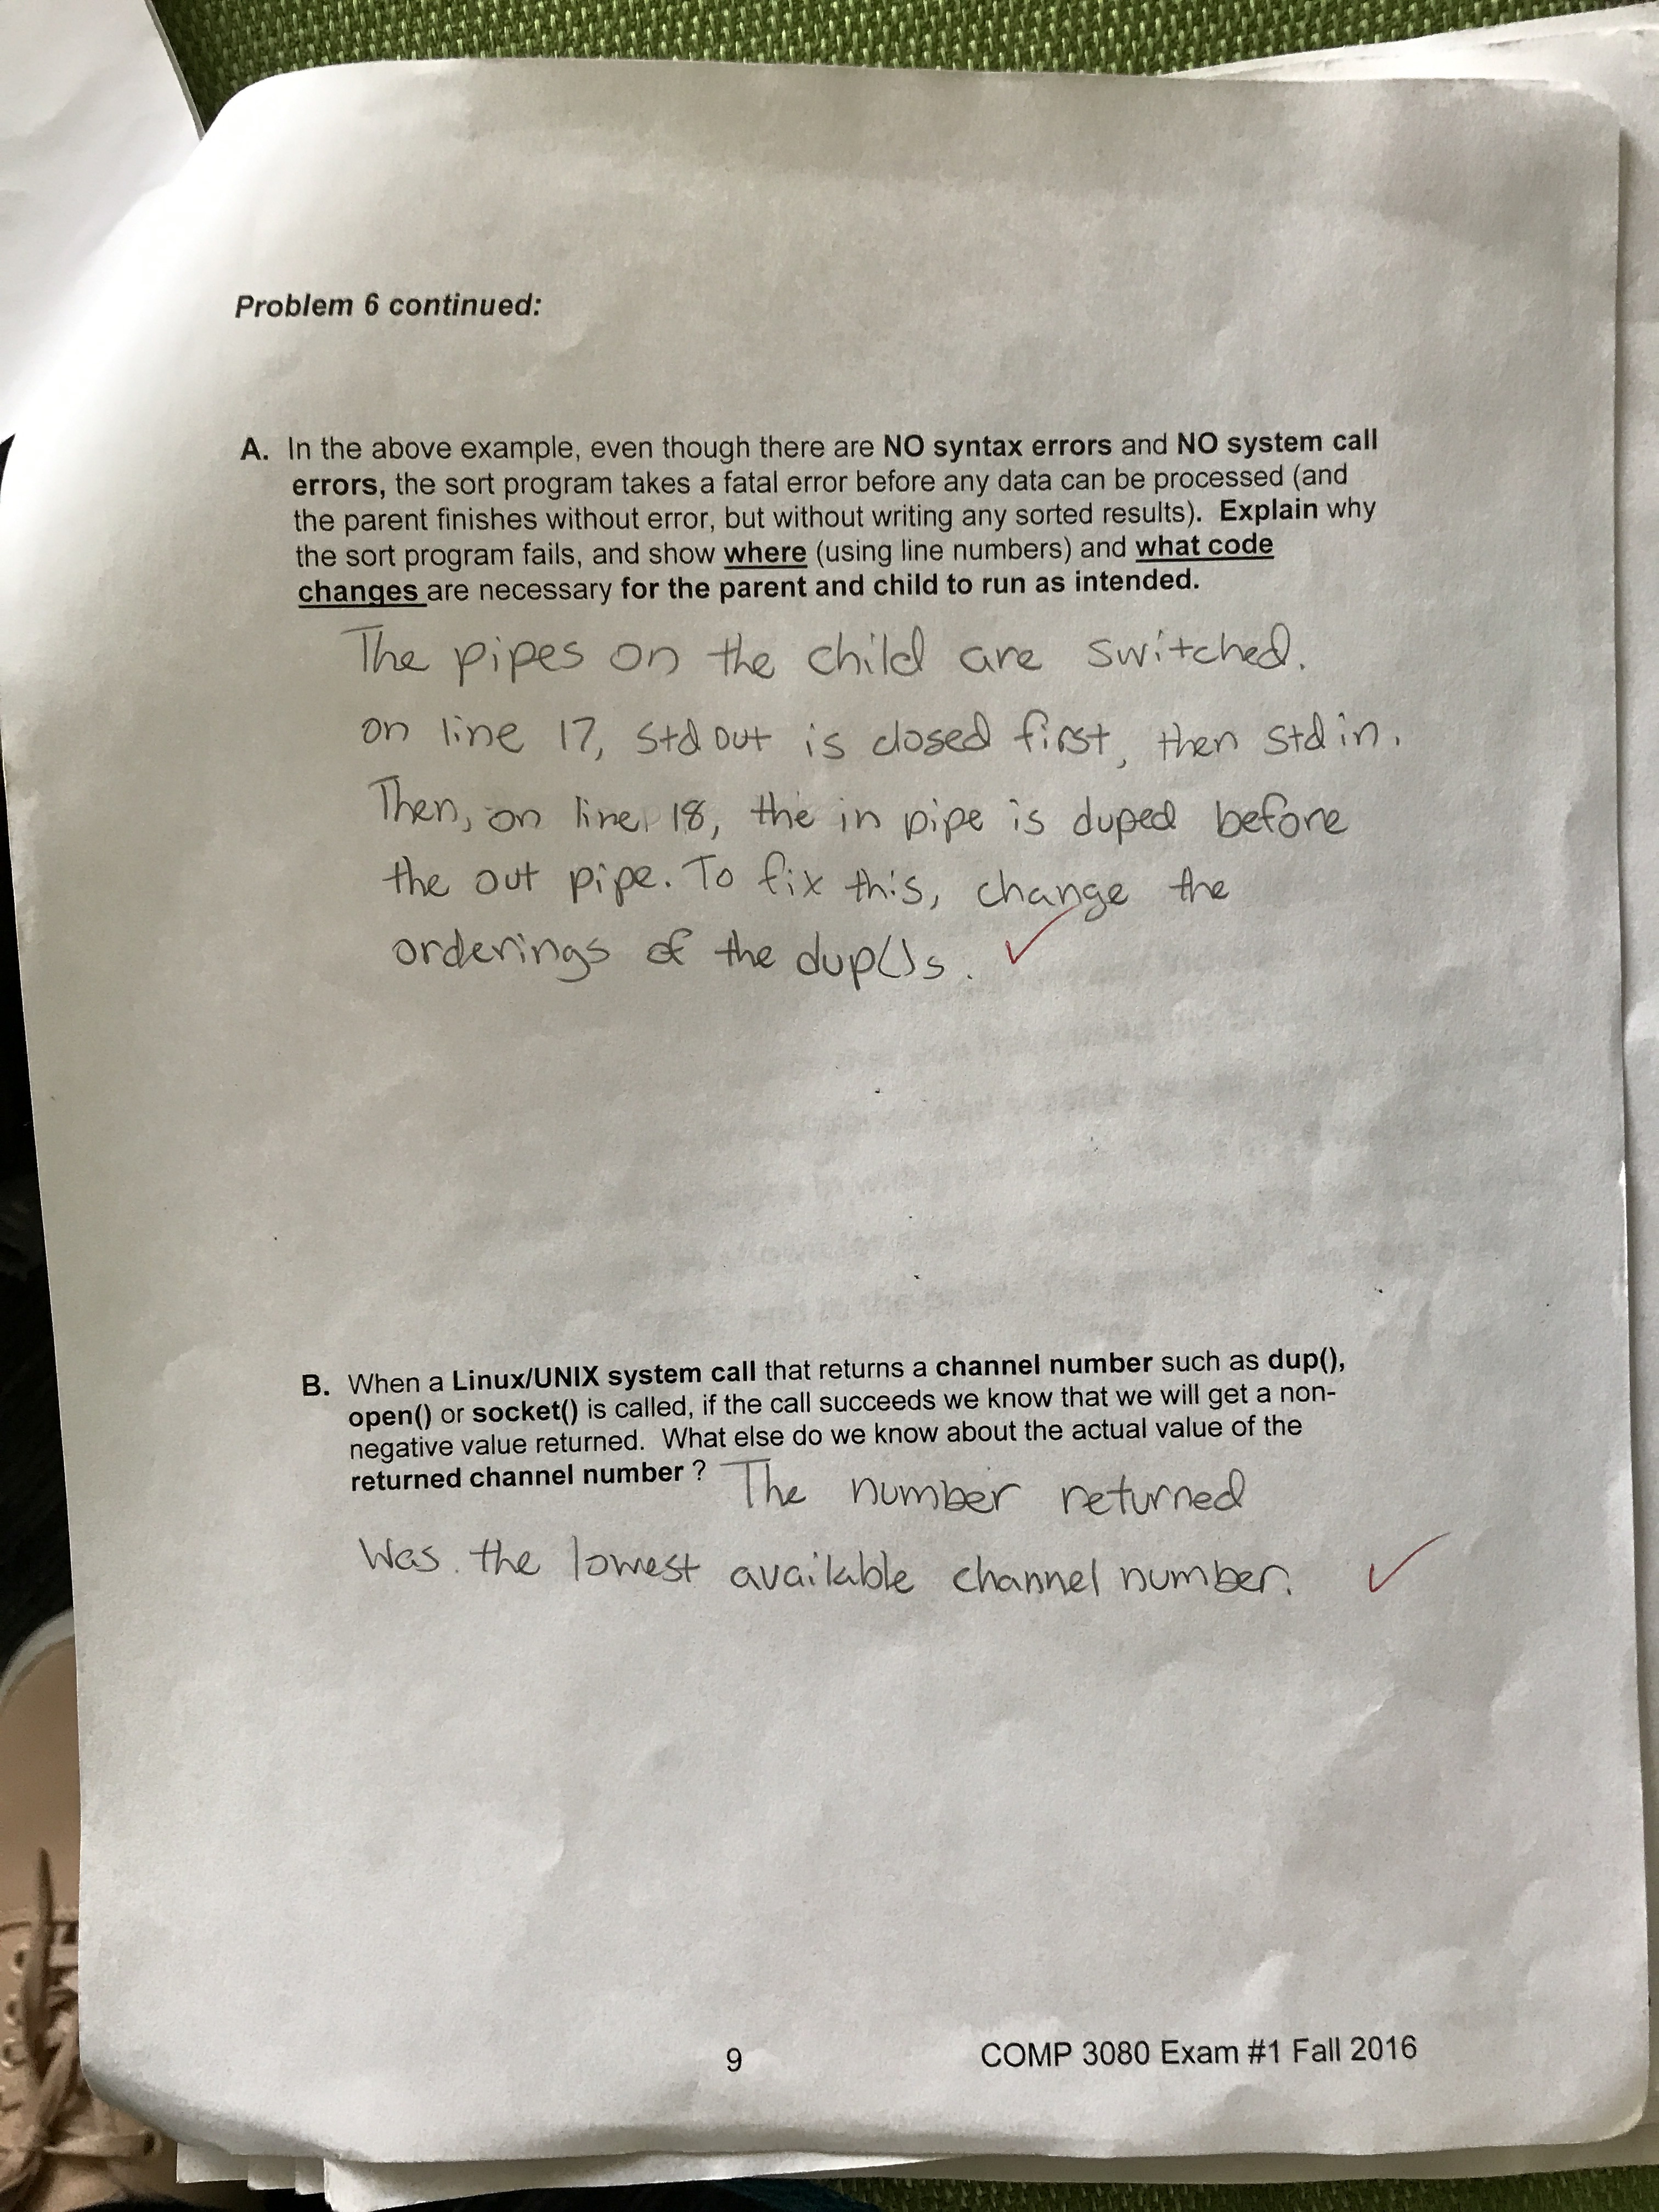 Problem 6 continued:
A. In the above example, even though there are NO syntax errors and NO system call
errors, the sort program takes a fatal error before any data can be processed (and
the parent finishes without error, but without writing any sorted results). Explain why
the sort program fails, and show where (using line numbers) and what code
changes are necessary for the parent and child to run as intended.
The pipes on the child are switched.
on line 17, std out is closed first, then std in.
Then, on line 18, the in pipe is duped before
the out pipe. To fix this, change the
orderings of the dup()s.
B. When a Linux/UNIX system call that returns a channel number such as dup(),
open() or socket() is called, if the call succeeds we know that we will get a non-
negative value returned. What else do we know about the actual value of the
returned channel number ? The number returned
Was the lowest available channel number.
9 COMP 3080 Exam #1 Fall 2016